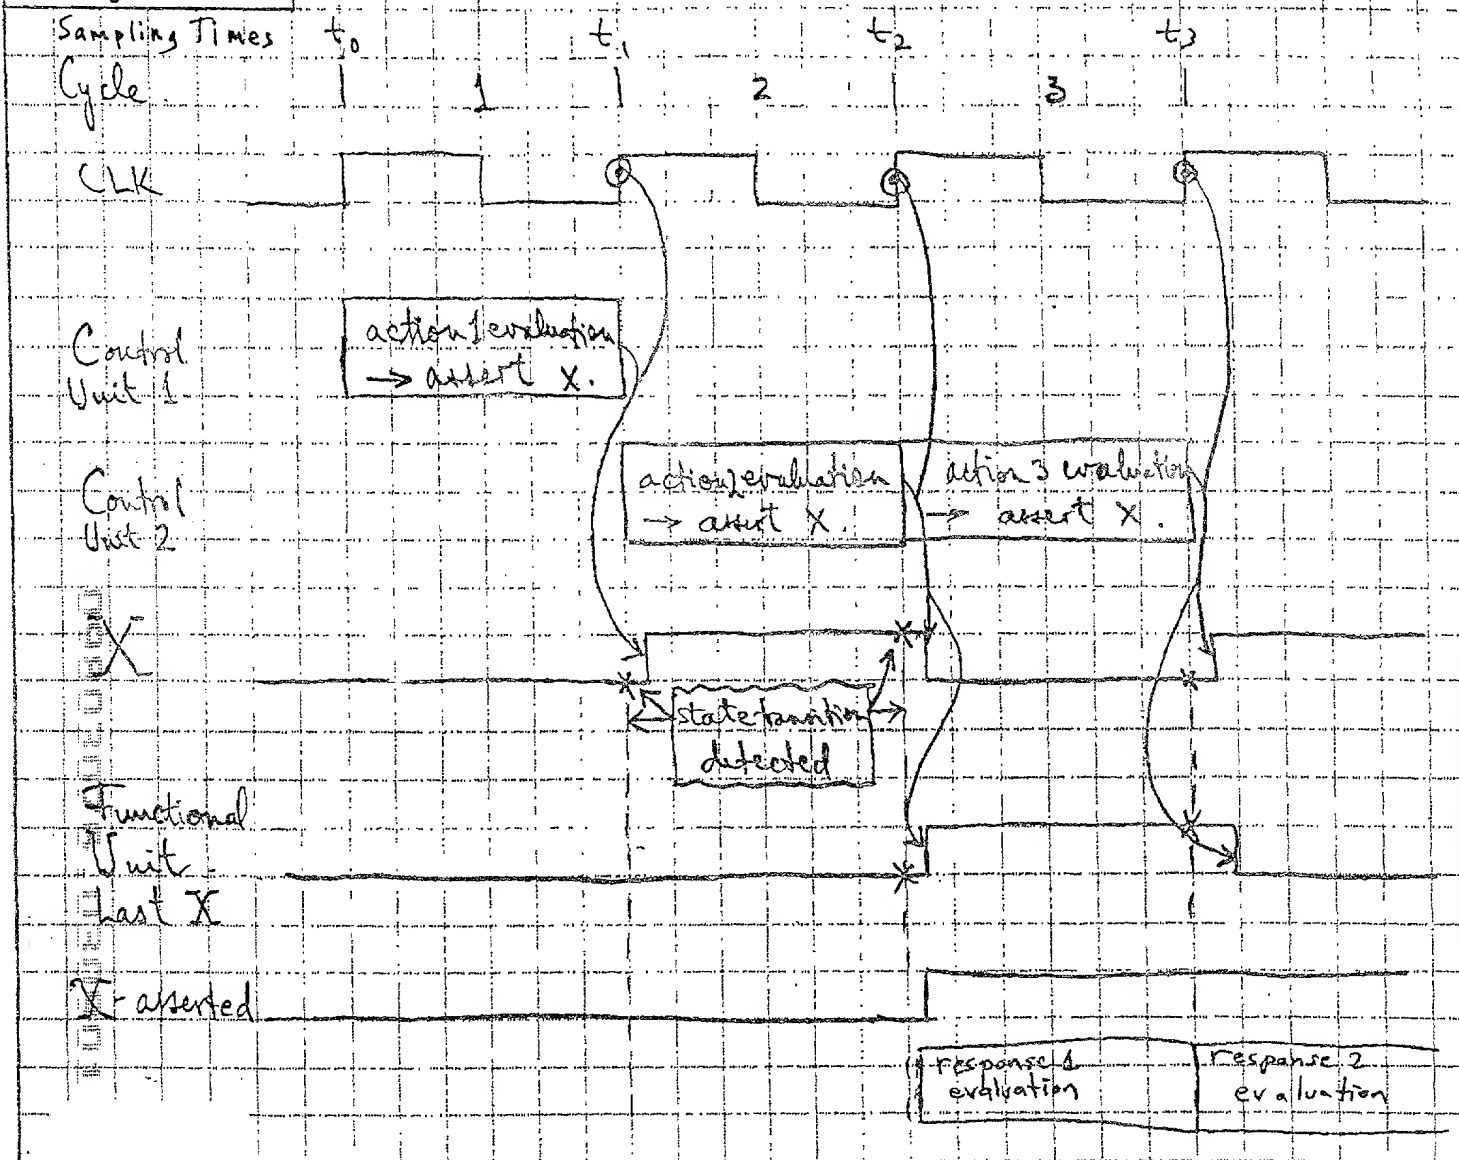 Sampling Times t0 t1 t2 t3
Cycle 1 2 3
CLK
Control
Unit 1
action 1 evaluation
→ assert X.
Control
Unit 2
action 2 evaluation
→ assert X.
action 3 evaluation
→ assert X.
X
state transition
detected
Functional
Unit
Last X
X-asserted
response 1
evaluation
response 2
evaluation